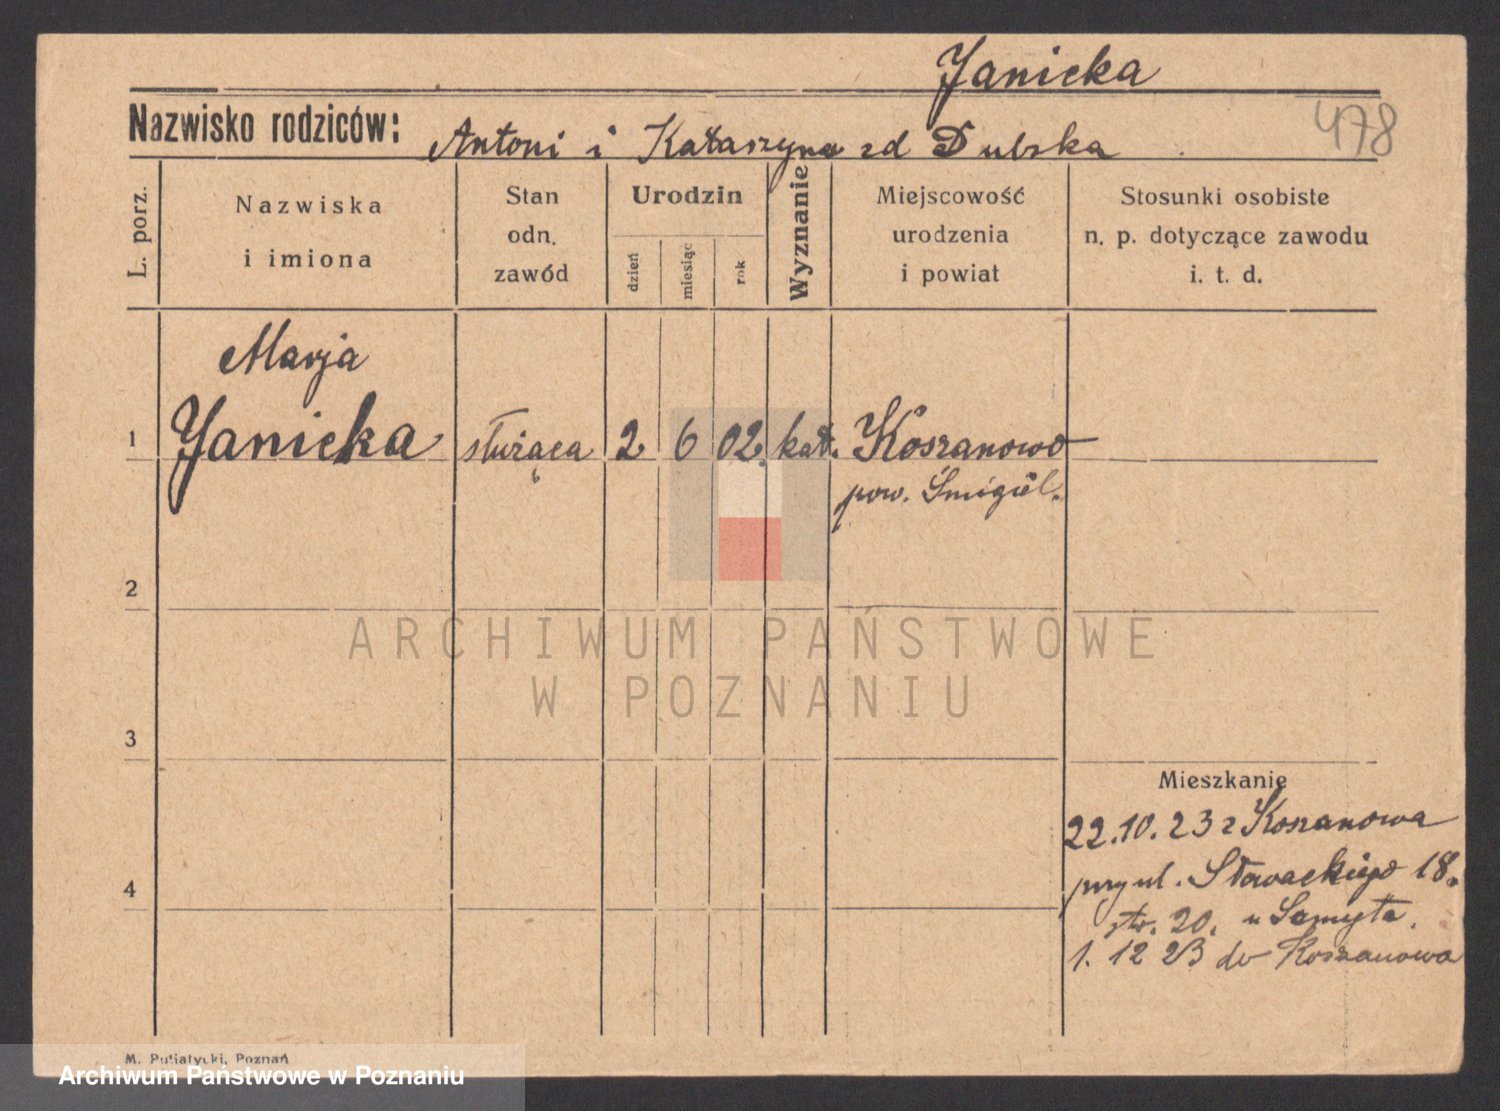 Janicka
478
Nazwisko rodziców: Antoni i Katarzyna zd Dubska
L. porz.
Nazwiska
i imiona
Stan
odn.
zawód
Urodzin
dzień
miesiąc
rok
Wyznanie
Miejscowość
urodzenia
i powiat
Stosunki osobiste
n. p. dotyczące zawodu
i. t. d.
Marja
1 Janicka służąca 2 6 02. kat. Koszanowo
pow. Śmigiel.
2
ARCHIWUM PAŃSTWOWE
W POZNANIU
3
Mieszkanie
22.10.23 z Koszanowa
przy ul. Słowackiego 18.
4
str. 20. u Samyta.
1. 12 23 do Koszanowa
M. Putiatycki, Poznań
Archiwum Państwowe w Poznaniu